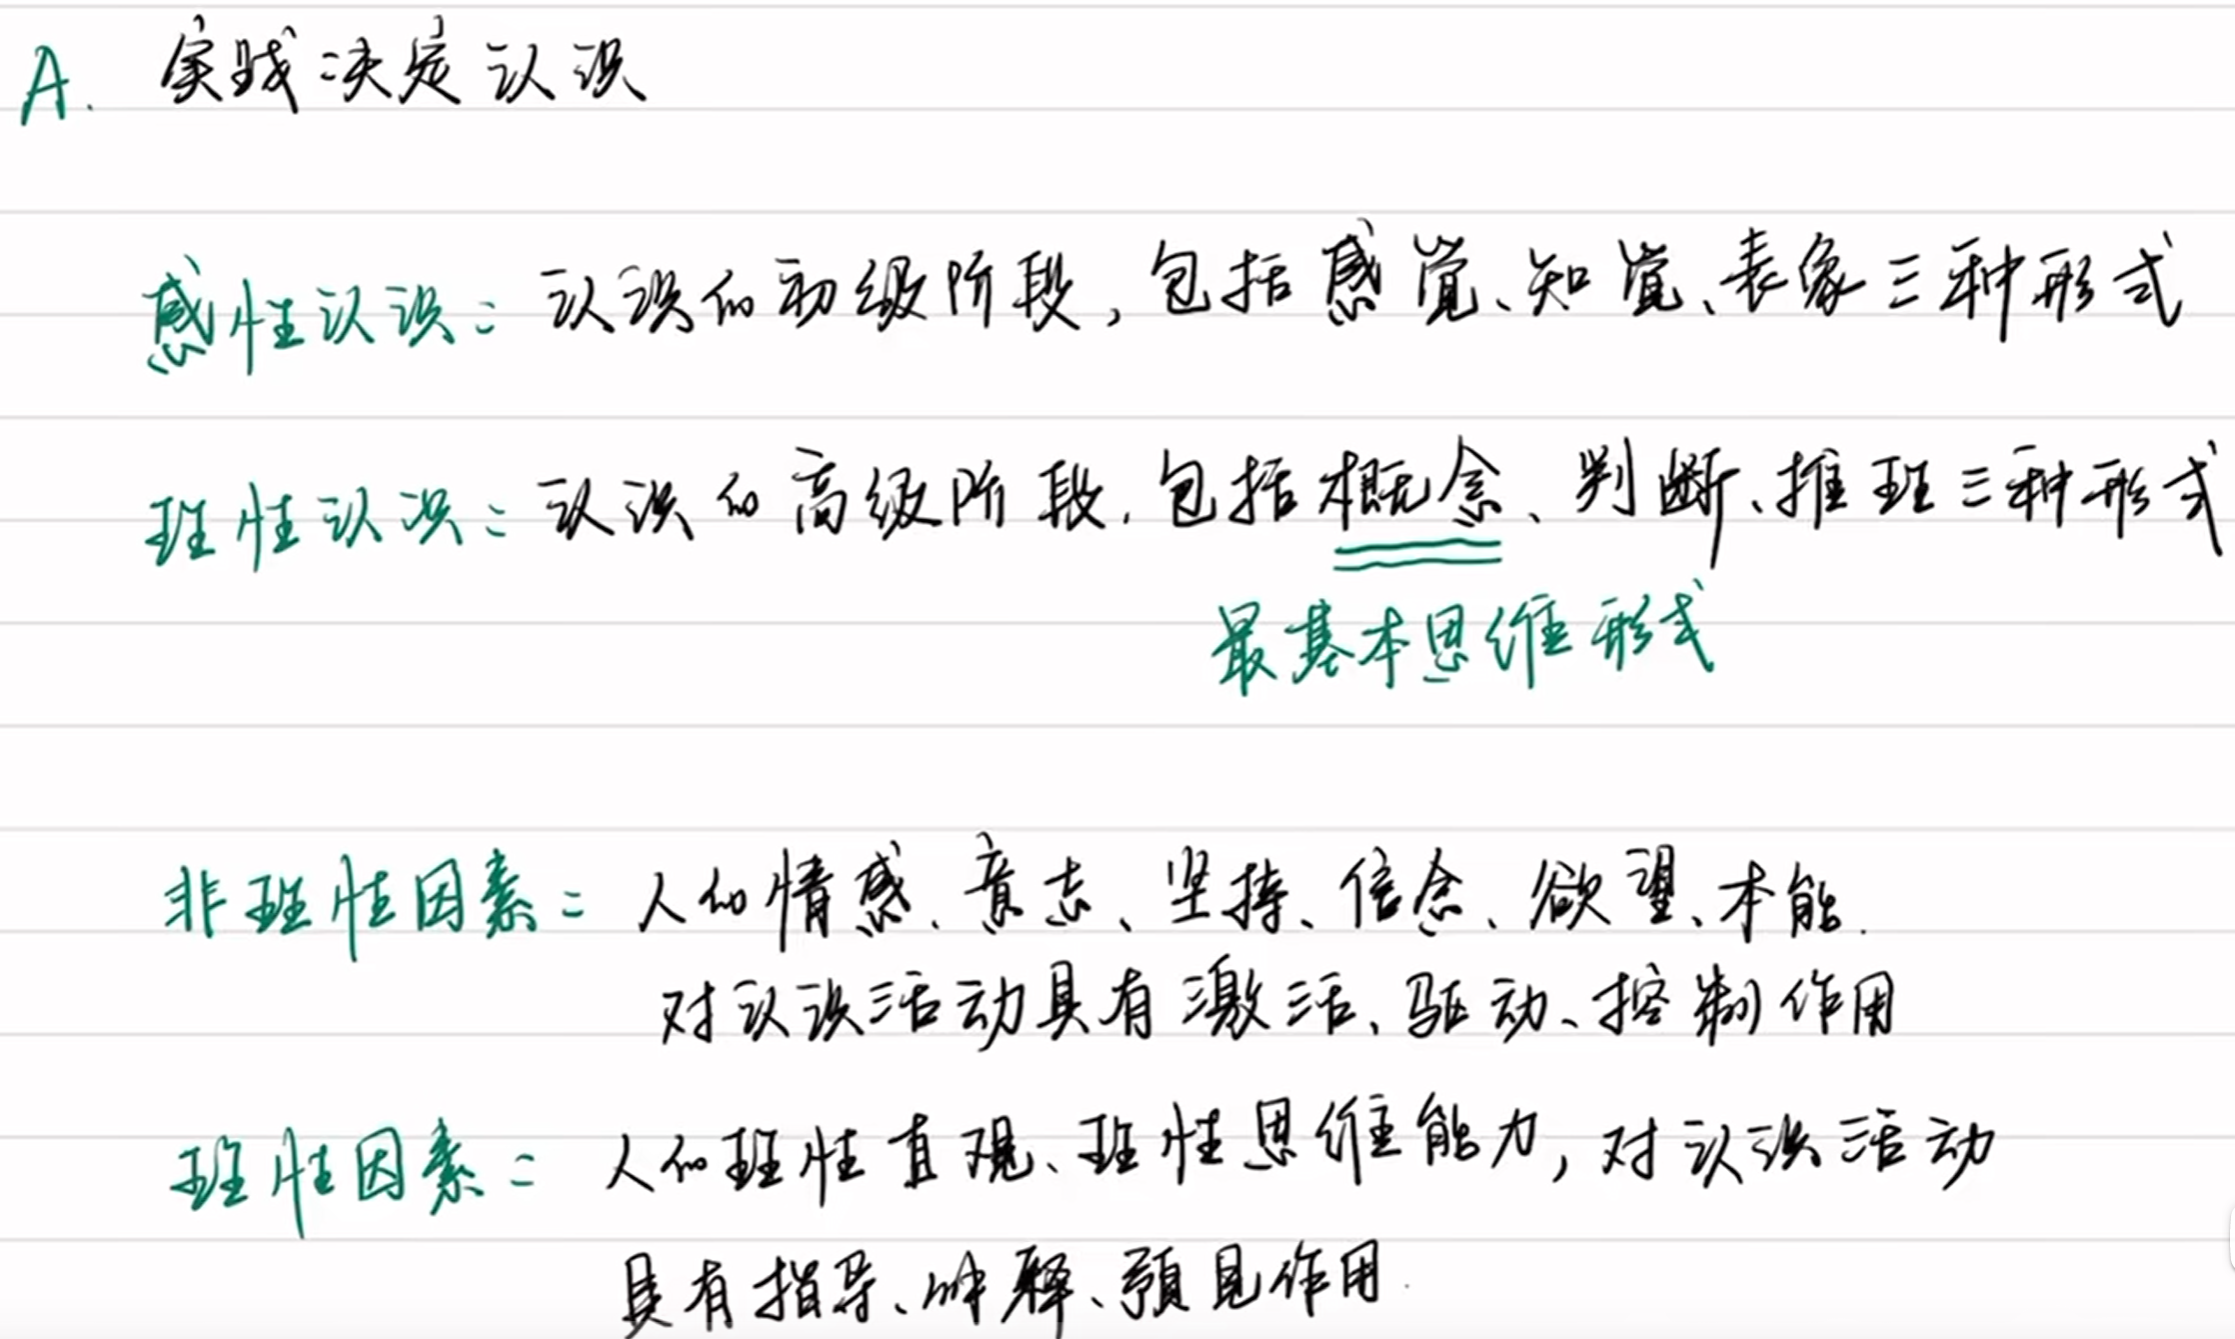 A. 实践决定认识
感性认识：认识的初级阶段，包括感觉、知觉、表象三种形式
理性认识：认识的高级阶段，包括概念、判断、推理三种形式
最基本思维形式
非理性因素：人的情感、意志、坚持、信念、欲望、本能.
对认识活动具有激活、驱动、控制作用
理性因素：人的理性直观、理性思维能力，对认识活动
具有指导、解释、预见作用.